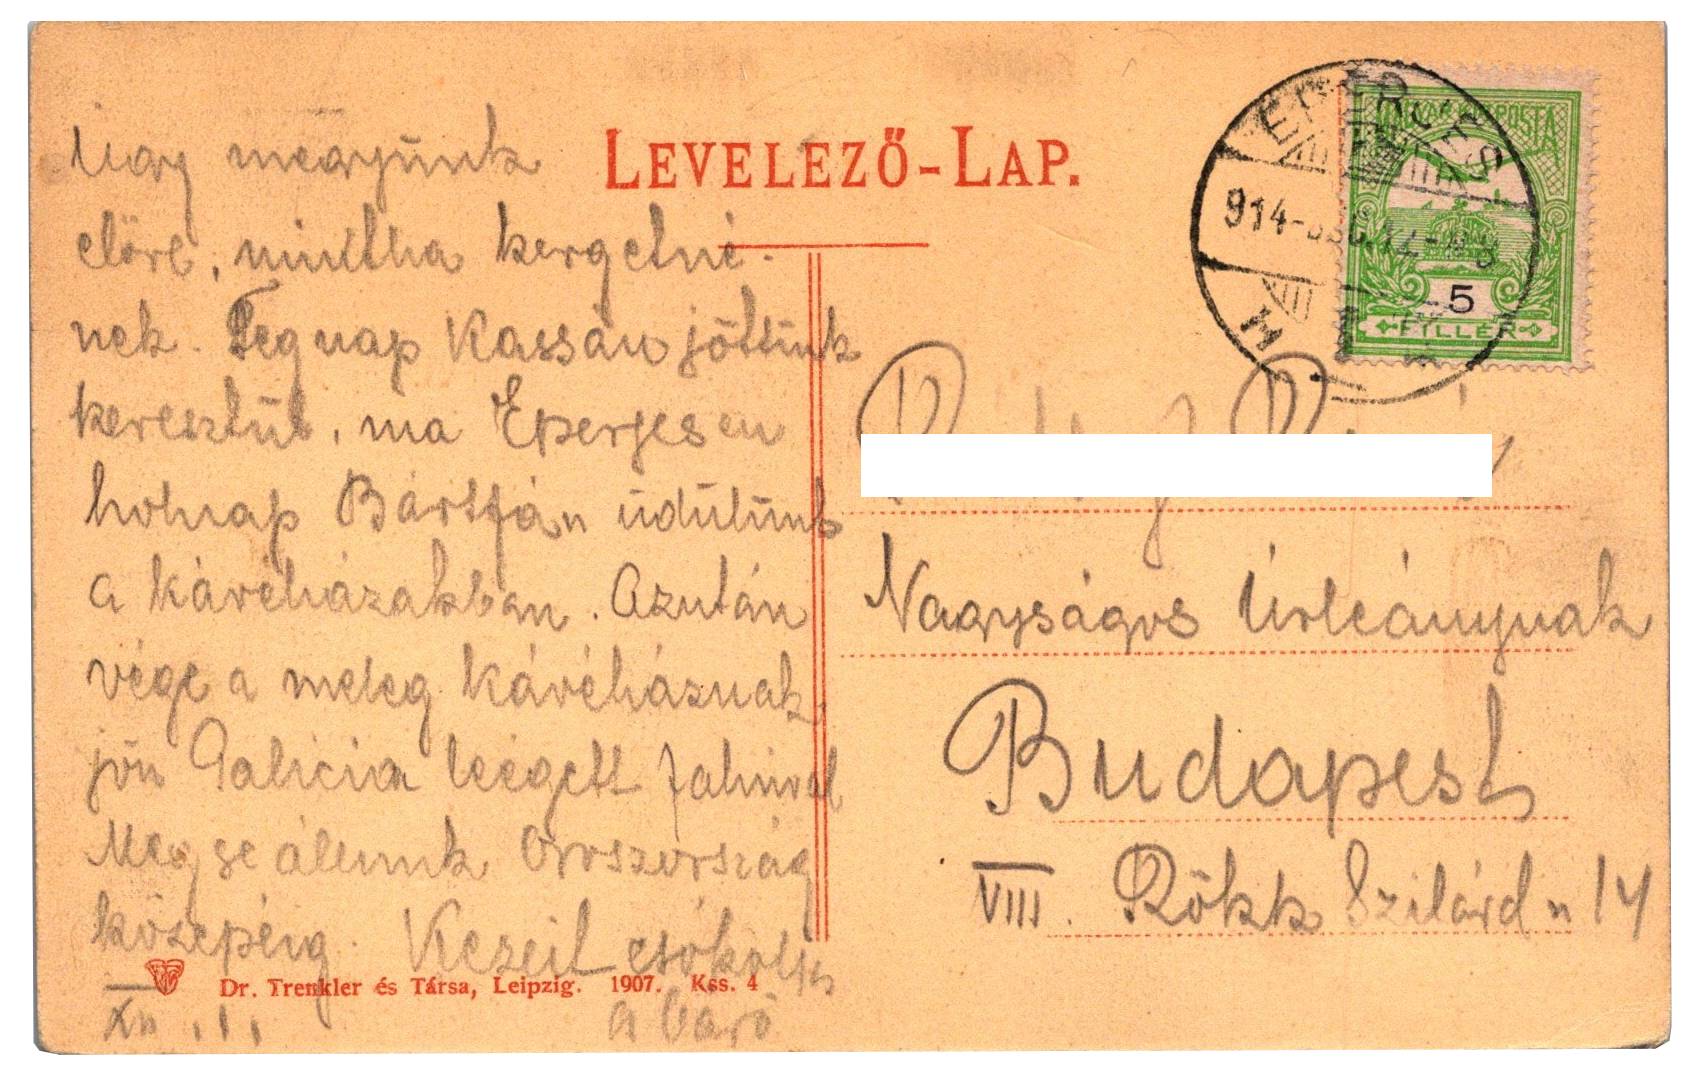 LEVELEZŐ-LAP.
Úgy megyünk
előre, mintha kergetné-
nek. Tegnap Kassán jöttünk
keresztül, ma Eperjesen
holnap Bártfán üdülünk
a kávéházakban. Azután
vége a meleg kávéháznak,
jön Galicia leégett falvival
Meg se állunk Oroszország
közepéig. Kezeit csókolja
a Báró
XII
EPERJES
914
MAGYAR KIR. POSTA
5
FILLÉR
Nagyságos Úrleánynak
Budapest
VIII. Rökk Szilárd u 14
Dr. Trenkler és Társa, Leipzig. 1907. Kss. 4